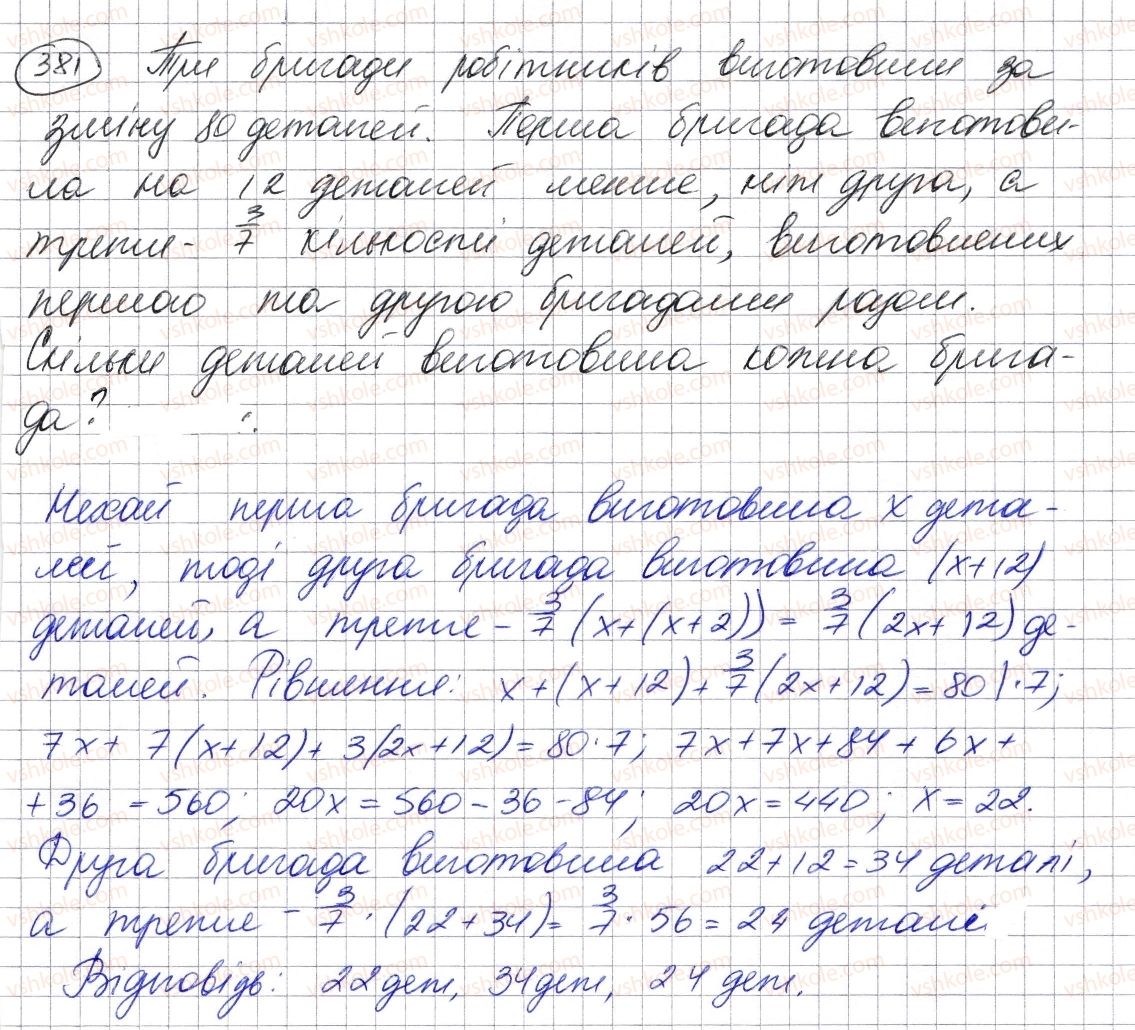 381 Три бригади робітників виготовили за
зміну 80 деталей. Перша бригада виготови-
ла на 12 деталей менше, ніж друга, а
третя - 3/7 кількості деталей, виготовлених
першою та другою бригадами разом.
Скільки деталей виготовила кожна брига-
да?
Нехай перша бригада виготовила x дета-
лей, тоді друга бригада виготовила (x+12)
деталей, а третя - 3/7 (x+(x+2)) = 3/7 (2x+12) де-
талей. Рівняння: x+(x+12)+3/7(2x+12)=80 |·7;
7x+ 7(x+12)+ 3(2x+12)=80·7; 7x+7x+84+6x+
+36 =560; 20x=560-36-84; 20x=440; x=22.
Друга бригада виготовила 22+12=34 деталі,
а третя - 3/7 · (22+34)= 3/7 · 56=24 деталі
Відповідь: 22дет, 34дет, 24 дет.